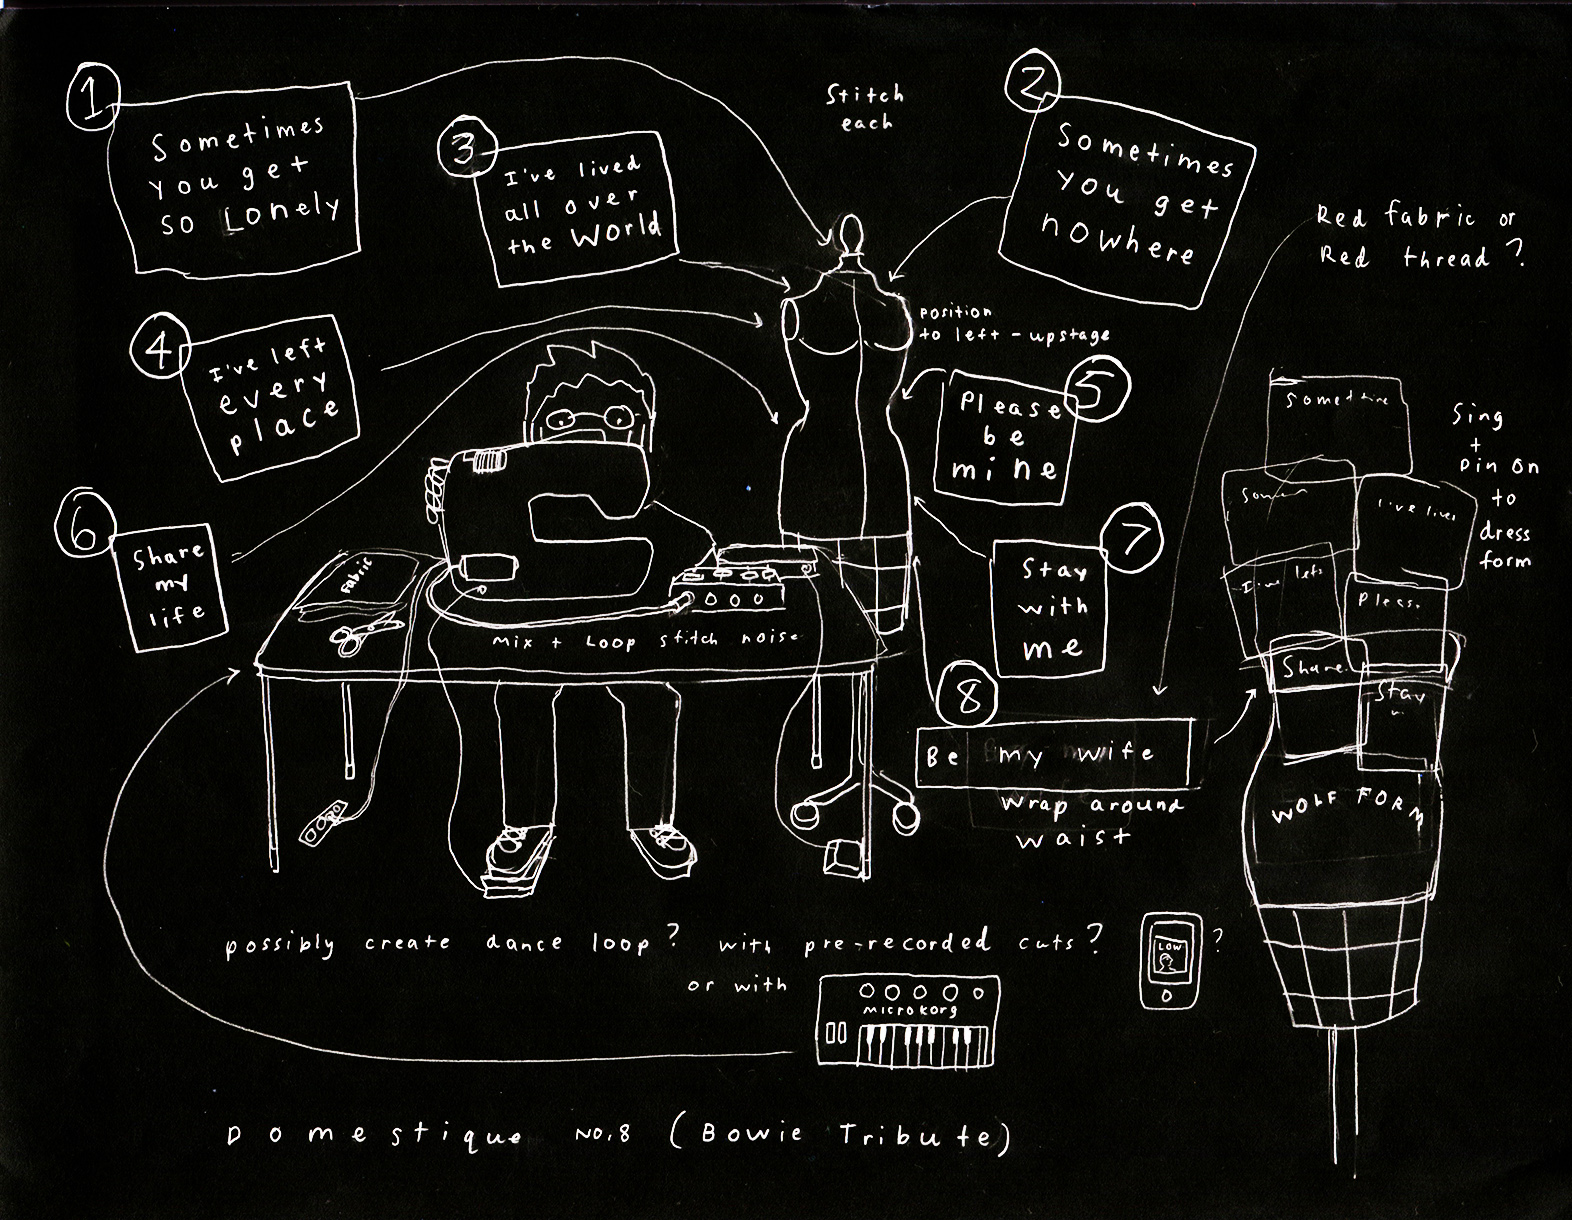 1
Sometimes
you get
so Lonely
3
I've lived
all over
the World
Stitch
each
2
Sometimes
you get
nowhere
Red fabric or
Red thread?
4
I've left
every
place
position
to left - upstage
5
Please
be
mine
6
Share
my
life
7
Stay
with
me
8
Be my wife
wrap around
waist
Fabric
Mix + Loop stitch noise
Sometime
I've lived
I've left
Pleas.
Share
Stay
Sing
+
pin on
to
dress
form
WOLF FORM
possibly create dance loop? with pre-recorded cuts?
LOW
?
or with
microkorg
Domestique No.8 (Bowie Tribute)